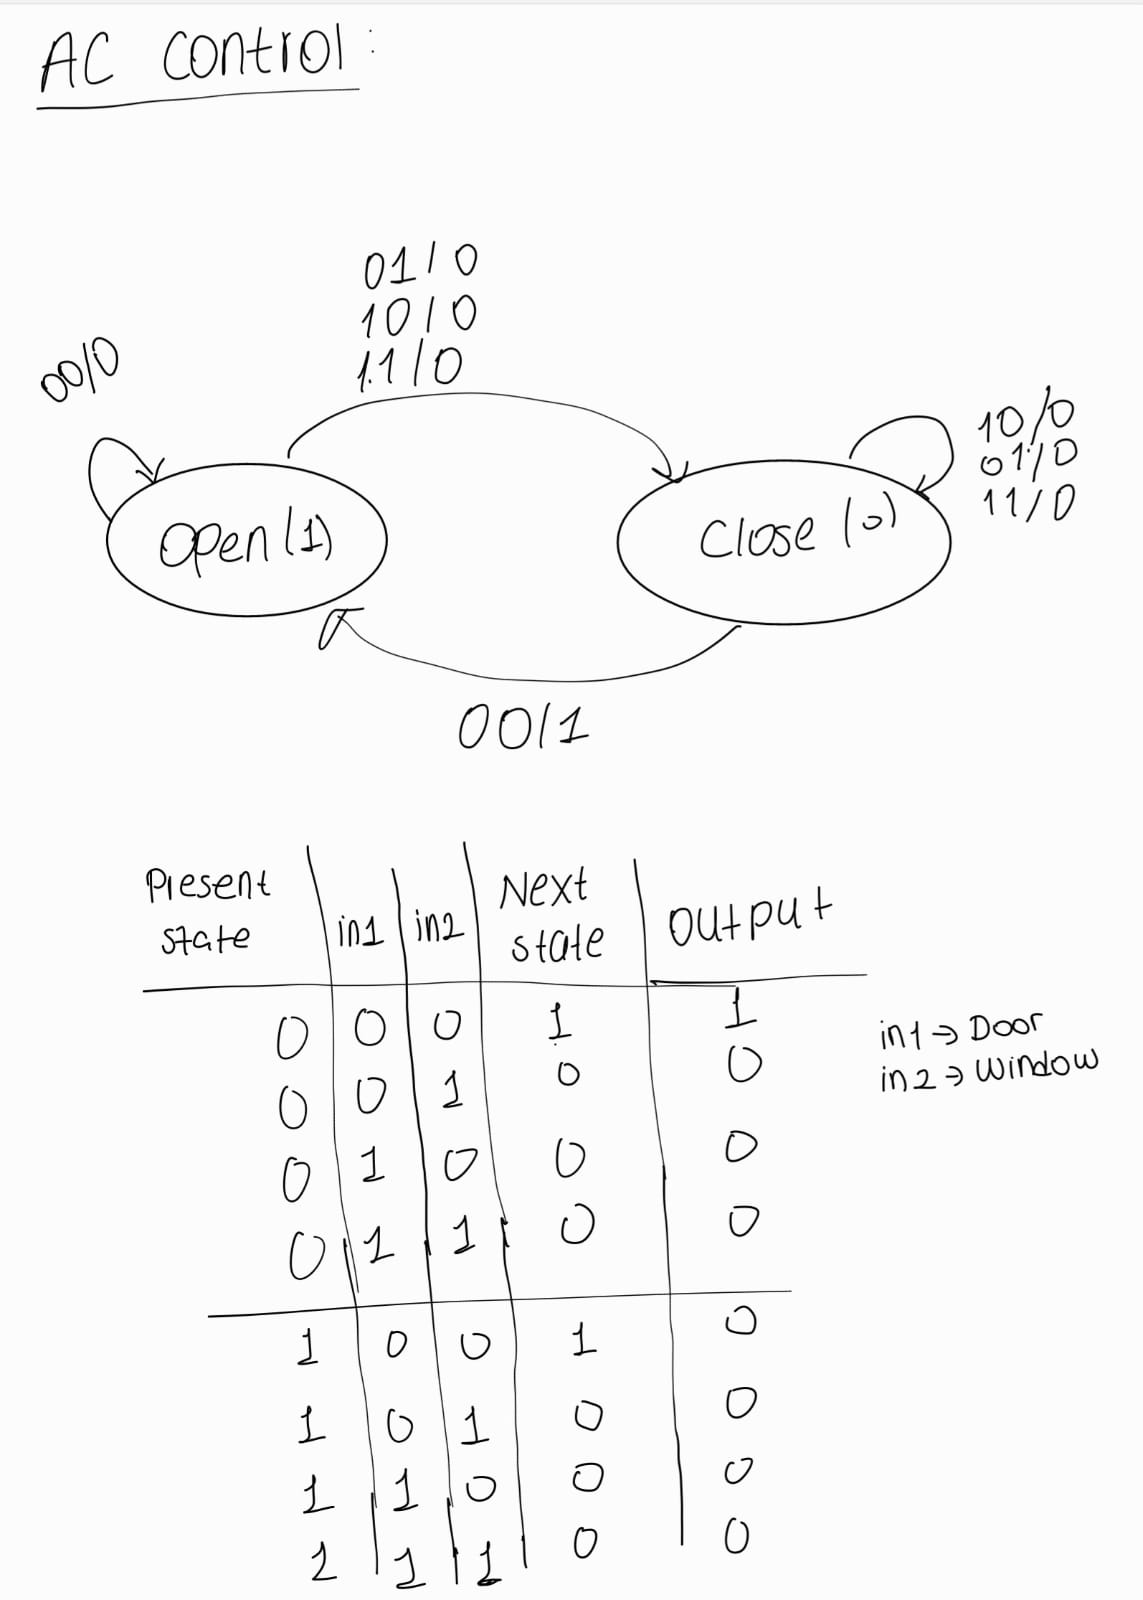 AC control:
01/0
10/0
11/0
00/0
10/0
01/0
11/0
open(1)
Close (0)
00/1
Present state | in1 | in2 | Next state | output
0 0 0 1 1
0 0 1 0 0
0 1 0 0 0
0 1 1 0 0
1 0 0 1 0
1 0 1 0 0
1 1 0 0 0
1 1 1 0 0
in1 ⇒ Door
in2 ⇒ Window